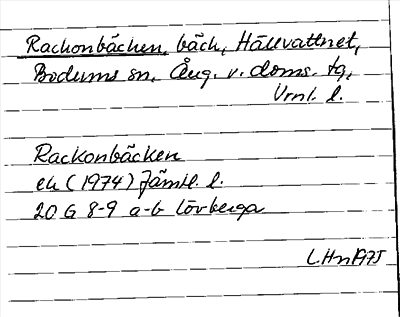 Rackonbäcken, bäck, Hällvattnet,
Bodums sn, Ång. v. doms. tg,
Vrnl. l.
Rackonbäcken
ek (1974) Jämtl. l.
20 G 8-9 a-b Lövberga
L.Hn 1975